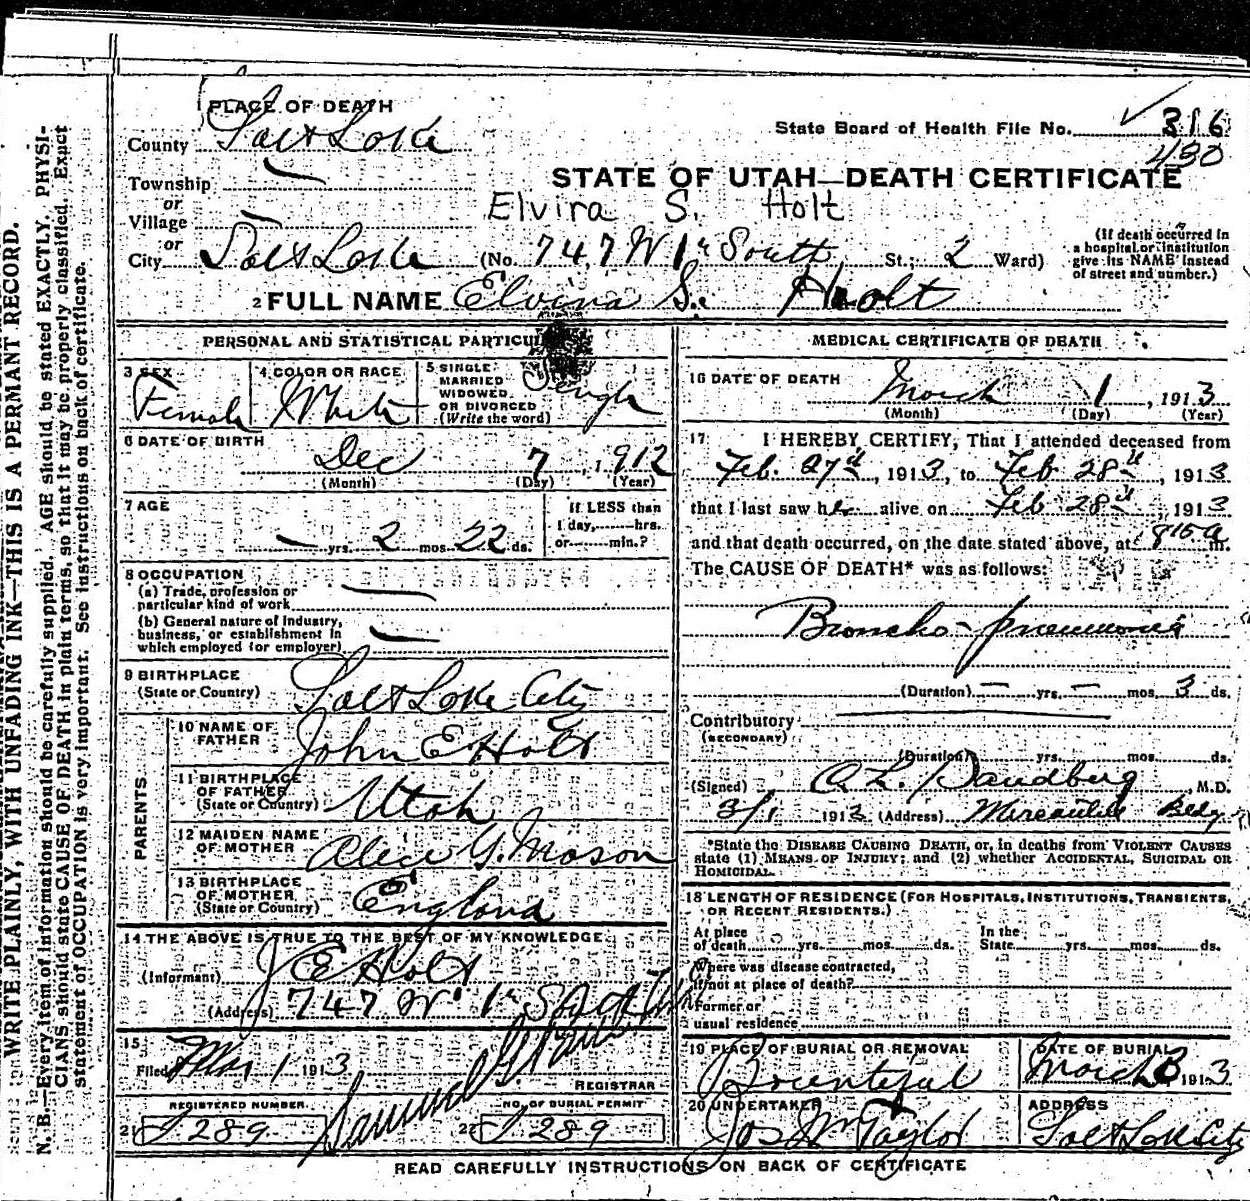 PLACE OF DEATH
County Salt Lake
State Board of Health File No. 316
490
Township
or
Village
or
STATE OF UTAH—DEATH CERTIFICATE
Elvira S. Holt
City Salt Lake (No. 747 W 1st South St.; 2 Ward)
(If death occurred in
a hospital or institution
give its NAME instead
of street and number.)
2 FULL NAME Elvira S. Holt
PERSONAL AND STATISTICAL PARTICU
3 SEX
Female
4 COLOR OR RACE
White
5 SINGLE
MARRIED
WIDOWED
OR DIVORCED
(Write the word)
Single
6 DATE OF BIRTH
Dec 7, 1912
(Month) (Day) (Year)
7 AGE
— yrs. 2 mos 22 ds.
If LESS than
1 day, hrs.
or min.?
8 OCCUPATION
(a) Trade, profession or
particular kind of work —
(b) General nature of Industry,
business, or establishment in
which employed (or employer) —
9 BIRTHPLACE
(State or Country) Salt Lake City
PARENTS
10 NAME OF
FATHER John E Holt
11 BIRTHPLACE
OF FATHER
(State or Country) Utah
12 MAIDEN NAME
OF MOTHER Alice G. Mason
13 BIRTHPLACE
OF MOTHER
(State or Country) England
14 THE ABOVE IS TRUE TO THE BEST OF MY KNOWLEDGE
(Informant) J E Holt
(Address) 747 W 1st South
15
Filed Mar 1 1913
Samuel G
REGISTRAR
REGISTERED NUMBER
21 J 289
NO. OF BURIAL PERMIT
22 J 289
MEDICAL CERTIFICATE OF DEATH
16 DATE OF DEATH March 1, 1913
(Month) (Day) (Year)
17 I HEREBY CERTIFY, That I attended deceased from
Feb. 27th, 1913, to Feb 28th, 1913
that I last saw her alive on Feb 28th, 1913
and that death occurred, on the date stated above, at 815 a m.
The CAUSE OF DEATH* was as follows:
Broncho-pneumonia
(Duration) — yrs. — mos. 3 ds.
Contributory
(SECONDARY)
(Duration) yrs. mos. ds.
(Signed) O. L. Sandberg M.D.
3/1 1913 (Address) Mercantile Bldg
*State the DISEASE CAUSING DEATH, or, in deaths from VIOLENT CAUSES
state (1) MEANS OF INJURY; and (2) whether ACCIDENTAL, SUICIDAL OR
HOMICIDAL.
18 LENGTH OF RESIDENCE (FOR HOSPITALS, INSTITUTIONS, TRANSIENTS,
OR RECENT RESIDENTS.)
At place
of death yrs. mos. ds.
In the
State yrs. mos. ds.
Where was disease contracted,
if not at place of death?
Former or
usual residence
19 PLACE OF BURIAL OR REMOVAL
Bountiful
DATE OF BURIAL
March 3 1913
20 UNDERTAKER
Jos Wm Taylor
ADDRESS
Salt Lake City
READ CAREFULLY INSTRUCTIONS ON BACK OF CERTIFICATE
WRITE PLAINLY, WITH UNFADING INK—THIS IS A PERMANT RECORD.
N. B.—Every item of information should be carefully supplied. AGE should be stated EXACTLY. PHYSI-
CIANS should state CAUSE OF DEATH in plain terms, so that it may be properly classified. Exact
statement of OCCUPATION is very important. See instructions on back of certificate.